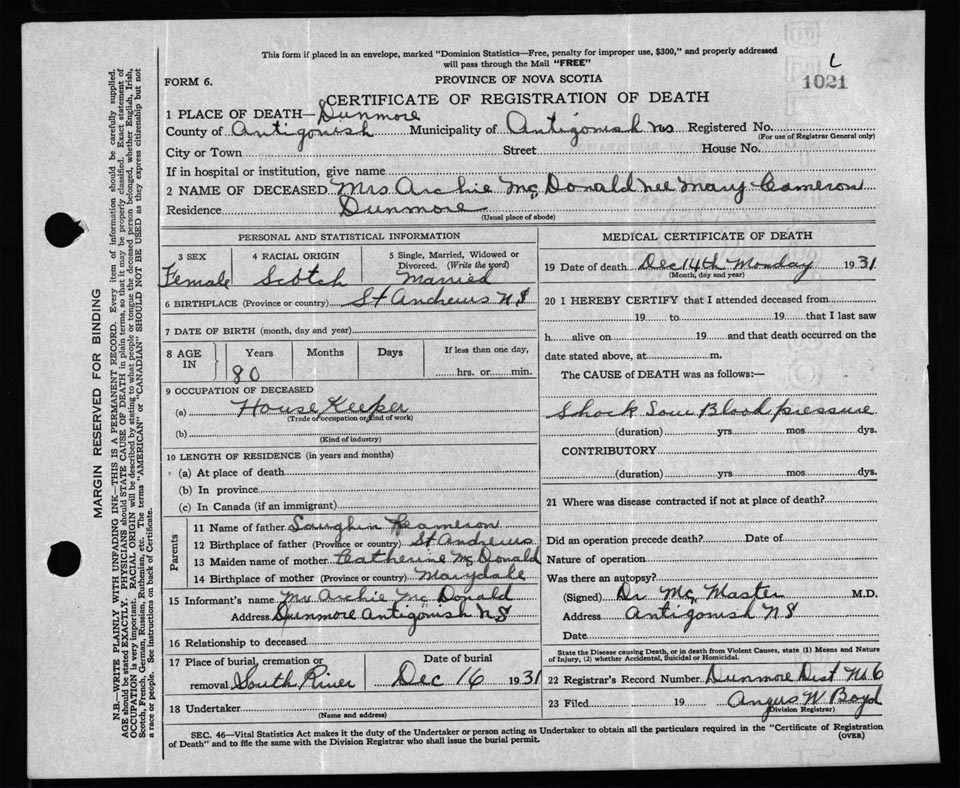 This form if placed in an envelope, marked "Dominion Statistics—Free, penalty for improper use, $300," and properly addressed
will pass through the Mail "FREE"
L
FORM 6.
PROVINCE OF NOVA SCOTIA
1021
CERTIFICATE OF REGISTRATION OF DEATH
1 PLACE OF DEATH— Dunmore
County of Antigonish Municipality of Antigonish NS Registered No.
(For use of Registrar General only)
City or Town Street House No.
If in hospital or institution, give name
2 NAME OF DECEASED Mrs Archie Mc Donald nee Mary Cameron
Residence Dunmore
(Usual place of abode)
PERSONAL AND STATISTICAL INFORMATION
3 SEX 4 RACIAL ORIGIN 5 Single, Married, Widowed or
Divorced. (Write the word)
Female Scotch Married
6 BIRTHPLACE (Province or country) St Andrews NS
7 DATE OF BIRTH (month, day and year)
8 AGE IN Years Months Days If less than one day,
80 hrs. or min.
9 OCCUPATION OF DECEASED
(a) House Keeper
(Trade or occupation or kind of work)
(b)
(Kind of industry)
10 LENGTH OF RESIDENCE (in years and months)
(a) At place of death
(b) In province
(c) In Canada (if an immigrant)
Parents
11 Name of father Cameron
12 Birthplace of father (Province or country) St Andrews
13 Maiden name of mother Catherine Mc Donald
14 Birthplace of mother (Province or country) Marydale
15 Informant's name Mr Archie Mc Donald
Address Dunmore Antigonish NS
16 Relationship to deceased
17 Place of burial, cremation or Date of burial
removal South River Dec 16 1931
18 Undertaker
(Name and address)
MEDICAL CERTIFICATE OF DEATH
19 Date of death Dec 14th Monday 1931
(Month, day and year)
20 I HEREBY CERTIFY that I attended deceased from
19 to 19 that I last saw
h alive on 19 and that death occurred on the
date stated above, at m.
The CAUSE of DEATH was as follows:—
Shock Low Blood pressure
(duration) yrs mos dys.
CONTRIBUTORY
(duration) yrs mos dys.
21 Where was disease contracted if not at place of death?
Did an operation precede death? Date of
Nature of operation
Was there an autopsy?
(Signed) Dr Mc Master M.D.
Address Antigonish NS
Date
State the Disease causing Death, or in death from Violent Causes, state (1) Means and Nature
of Injury, (2) whether Accidental, Suicidal or Homicidal.
22 Registrar's Record Number Dunmore Dist No 6
23 Filed 19 Angus W Boyd
(Division Registrar)
SEC. 46—Vital Statistics Act makes it the duty of the Undertaker or person acting as Undertaker to obtain all the particulars required in the "Certificate of Registration
of Death" and to file the same with the Division Registrar who shall issue the burial permit.
(OVER)
MARGIN RESERVED FOR BINDING
N.B.—WRITE PLAINLY WITH UNFADING INK—THIS IS A PERMANENT RECORD. Every item of information should be carefully supplied.
AGE should be stated EXACTLY. PHYSICIANS should STATE CAUSE OF DEATH in plain terms, so that it may be properly classified. Exact statement of
OCCUPATION is very important. RACIAL ORIGIN will be described by stating to what people or tongue the deceased person belonged, whether English, Irish,
Scotch, French, German, Russian, Ruthenian, etc. The terms "AMERICAN" or "CANADIAN" SHOULD NOT BE USED as they express citizenship but not
a race or people. See instructions on back of Certificate.